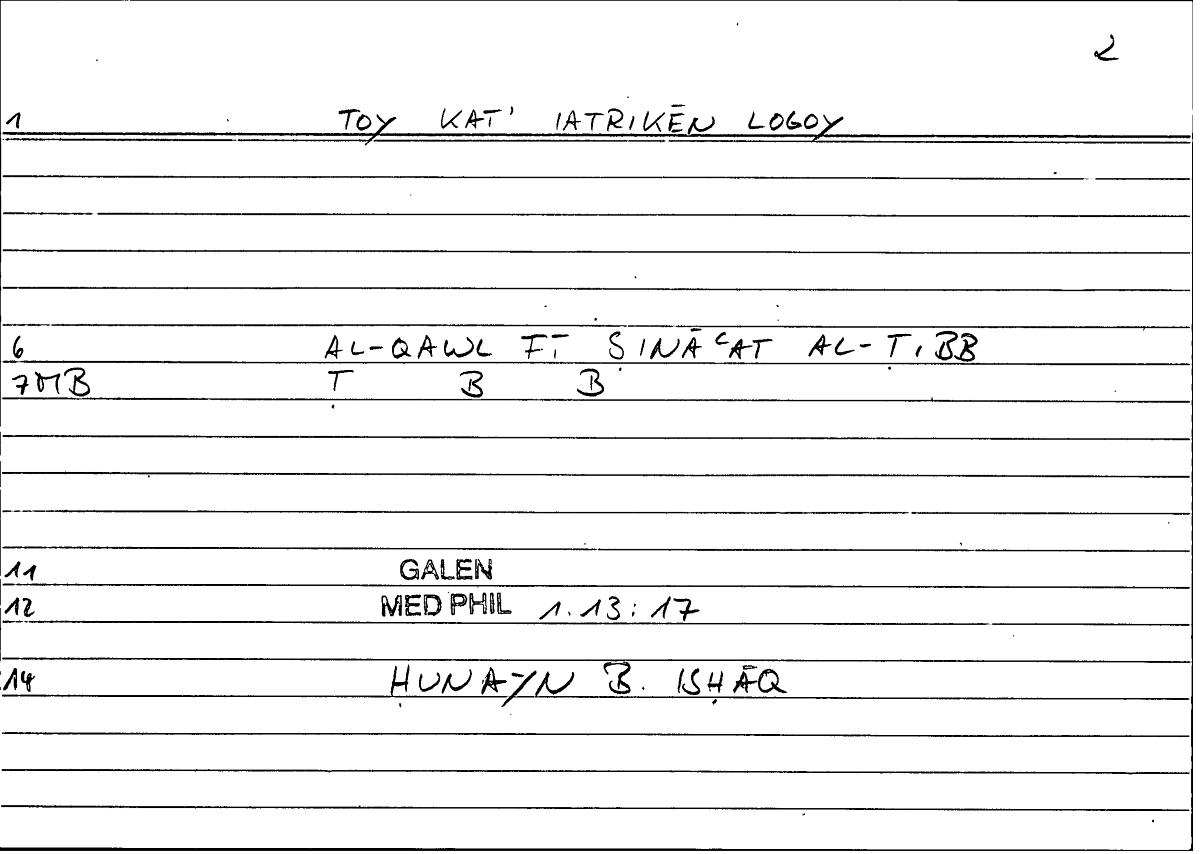 2
1 TOY KAT' IATRIKĒN LOGOY
6 AL-QAWL FĪ ṢINĀʿAT AL-ṬIBB
7MB Ṭ B B
11 GALEN
12 MED PHIL 1.13:17
14 ḤUNAYN B. ISḤĀQ